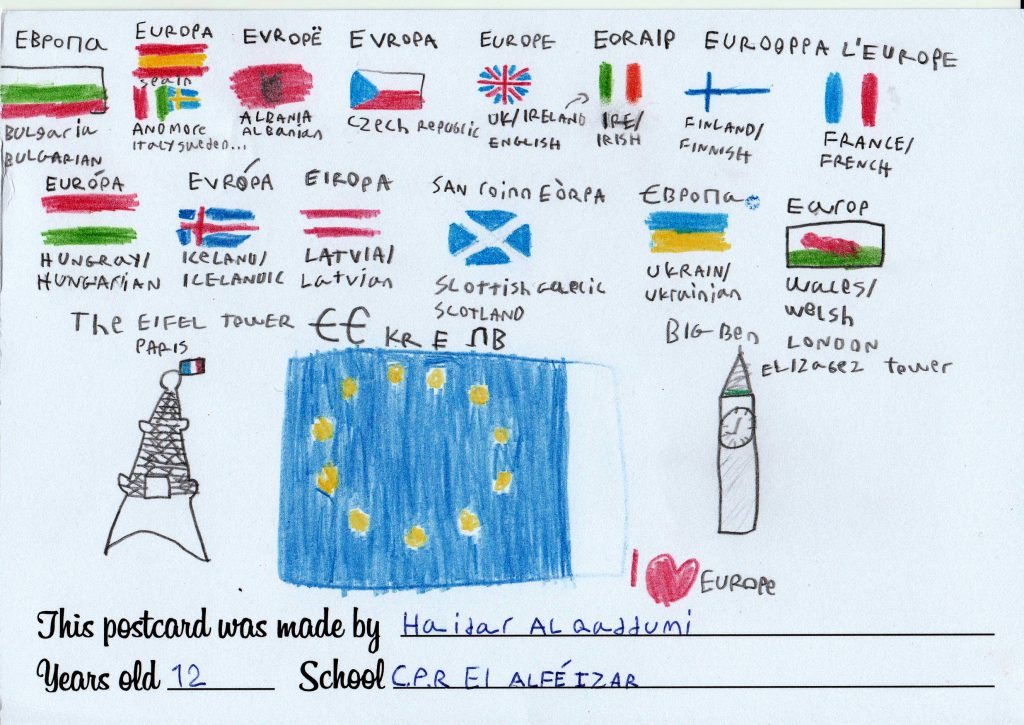 ЕВРОПА EUROPA EVROPË EVROPA EUROPE EORAIP EUROOPPA L'EUROPE
spain
BULGARIA
BULGARIAN
AND MORE
Italy sweden...
ALBANIA
ALBANIAN
CZECH REPUBLIC
UK/IRELAND
ENGLISH
IRE/
IRISH
FINLAND/
FINNISH
FRANCE/
FRENCH
EURÓPA EVRÓPA EIROPA SAN roinn EÒRPA ЄВРОПА Ewrop
HUNGRAY/
HUNGARIAN
ICELAND/
ICELANDIC
LATVIA/
Latvian
Scottish Gaelic
SCOTLAND
UKRAIN/
Ukrainian
WALES/
Welsh
The EIFEL TOWER
PARIS
€€ KR E ПВ
BIG Ben
LONDON
ELIZAGEZ tower
I EUROPE
This postcard was made by Haidar AL qaddumi
Years old 12 School C.P.R El ALFÉIZAR